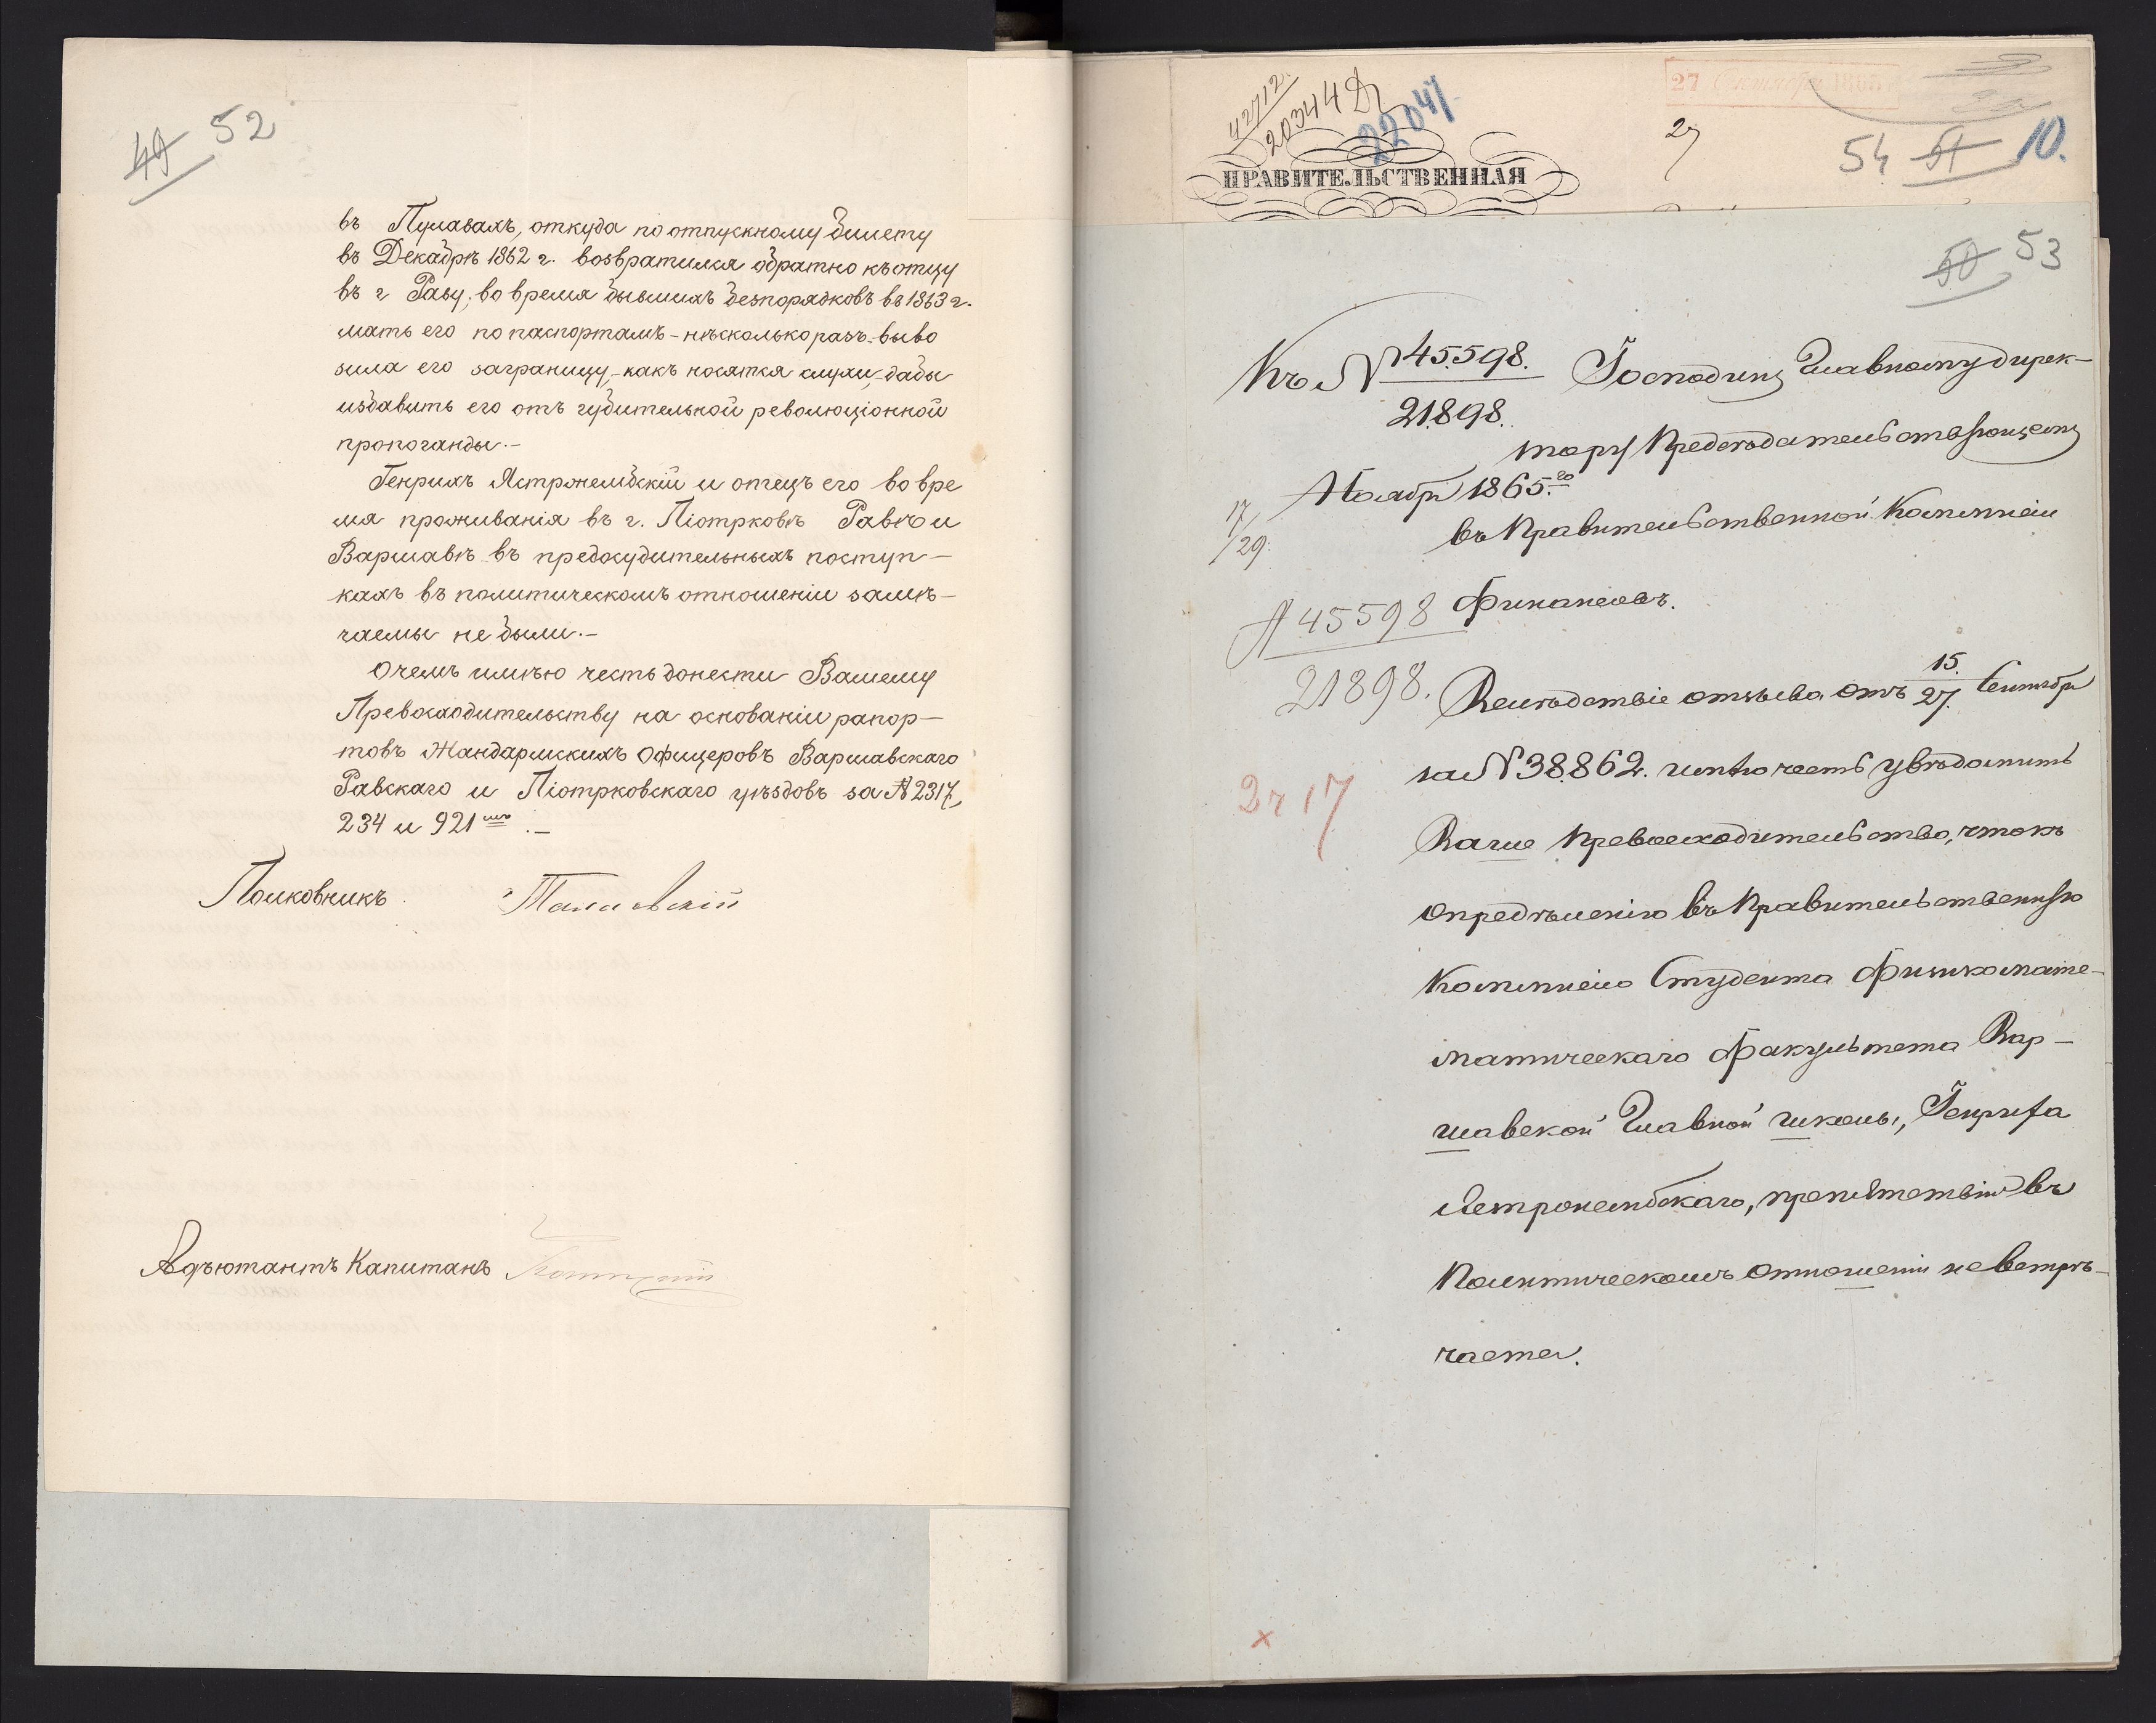 49 52
въ Пулавахъ, откуда по отпускному билету
въ Декабрѣ 1862 г. возвратился обратно къ отцу
въ г Раву; во время бывшихъ безпорядковъ въ 1863 г.
мать его по паспортамъ - нѣсколько разъ - выво
зила его заграницу, - какъ носятся слухи, - дабы
избавить его отъ губительной революціонной
пропоганды. -
Генрихъ Ястржембскій и отецъ его во вре
мя проживанія въ г. Піотрковѣ Равѣ и
Варшавѣ въ предосудительныхъ поступ-
кахъ въ политическомъ отношеніи замѣ-
чаемы не были. -
О чемъ имѣю честь донести Вашему
Превосходительству на основаніи рапор-
товъ Жандармскихъ Офицеровъ Варшавскаго
Равскаго и Піотрковскаго уѣздовъ за № 2317,
234 и 921мъ. -
Полковникъ
Адъютантъ Капитанъ
42712
20344
22047
27 1865
27
54 51 10.
ПРАВИТЕЛЬСТВЕННАЯ
50 53
Къ № 45.598.
21.898.
Господину Главному дирек-
тору Предсѣдательствующему
17/29. Ноября 1865.го
въ Правительственной Коммисіи
Финансовъ.
№ 45598
21898.
Вслѣдствіе отзыва отъ 15./27. Сентября
за № 38.862. имѣю честь увѣдомить
2 г 17
Ваше Превосходительство, что къ
опредѣленію въ Правительственную
Коммисію Студента Физико мате-
матическаго факультета Вар-
шавской Главной школы, Генриха
Ястржембскаго, препятствій въ
Политическомъ отношеніи не встрѣ-
чается.